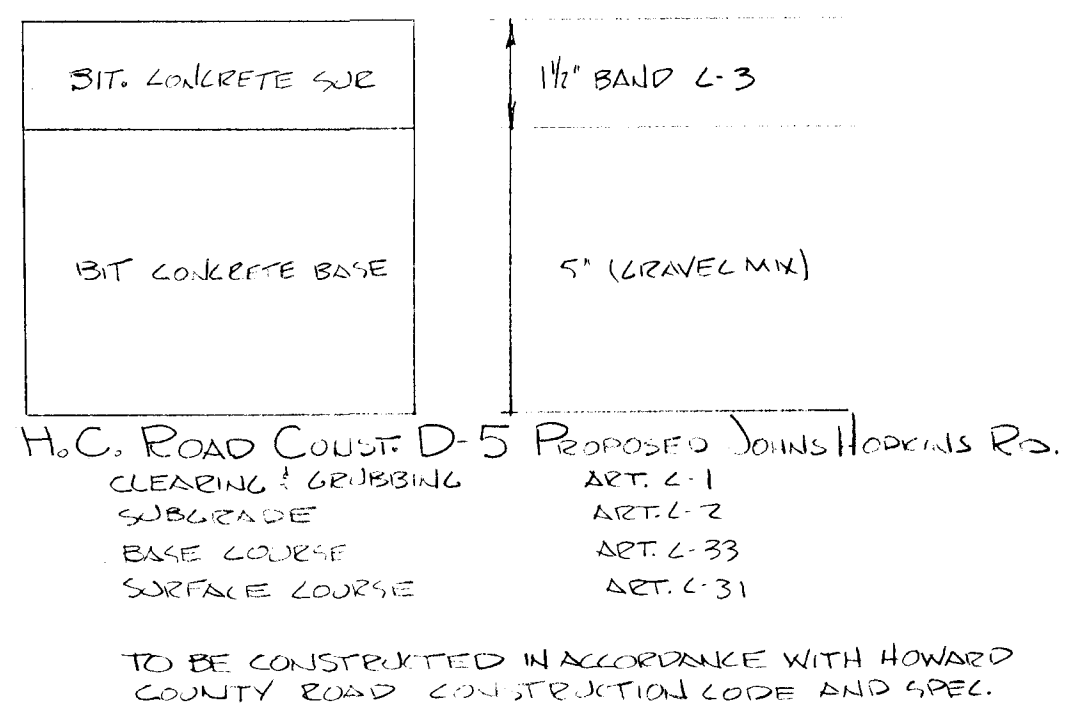 BIT. CONCRETE SUR
1½" BAND C-3
BIT CONCRETE BASE
5" (GRAVEL MIX)
H.C. ROAD CONST. D-5 PROPOSED JOHNS HOPKINS RD.
CLEARING & GRUBBING ART. C-1
SUBGRADE ART. C-2
BASE COURSE ART. C-33
SURFACE COURSE ART. C-31
TO BE CONSTRUCTED IN ACCORDANCE WITH HOWARD
COUNTY ROAD CONSTRUCTION CODE AND SPEC.